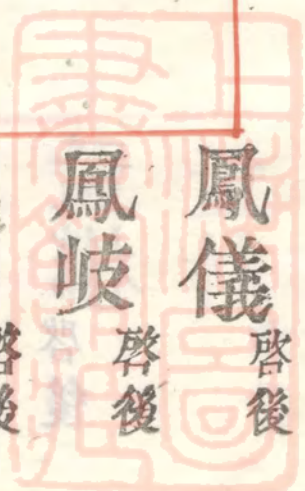 鳳儀啓後
鳳岐啓後
啓後